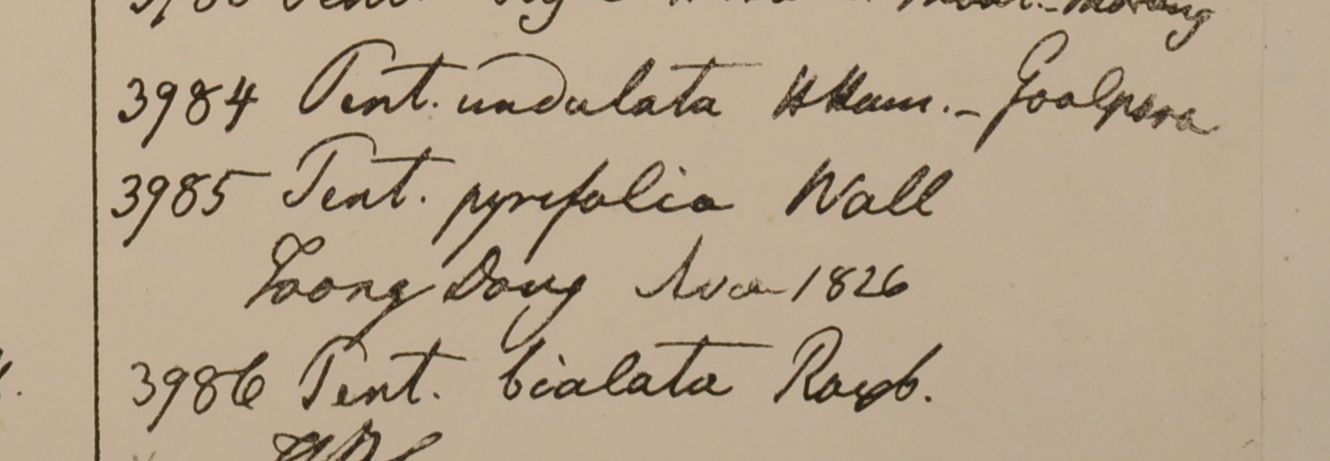 3984 Pent. undulata HHam. - Goalpara
3985 Pent. pyrifolia Wall
Toong Dong Ava 1826
3986 Pent. bialata Roxb.